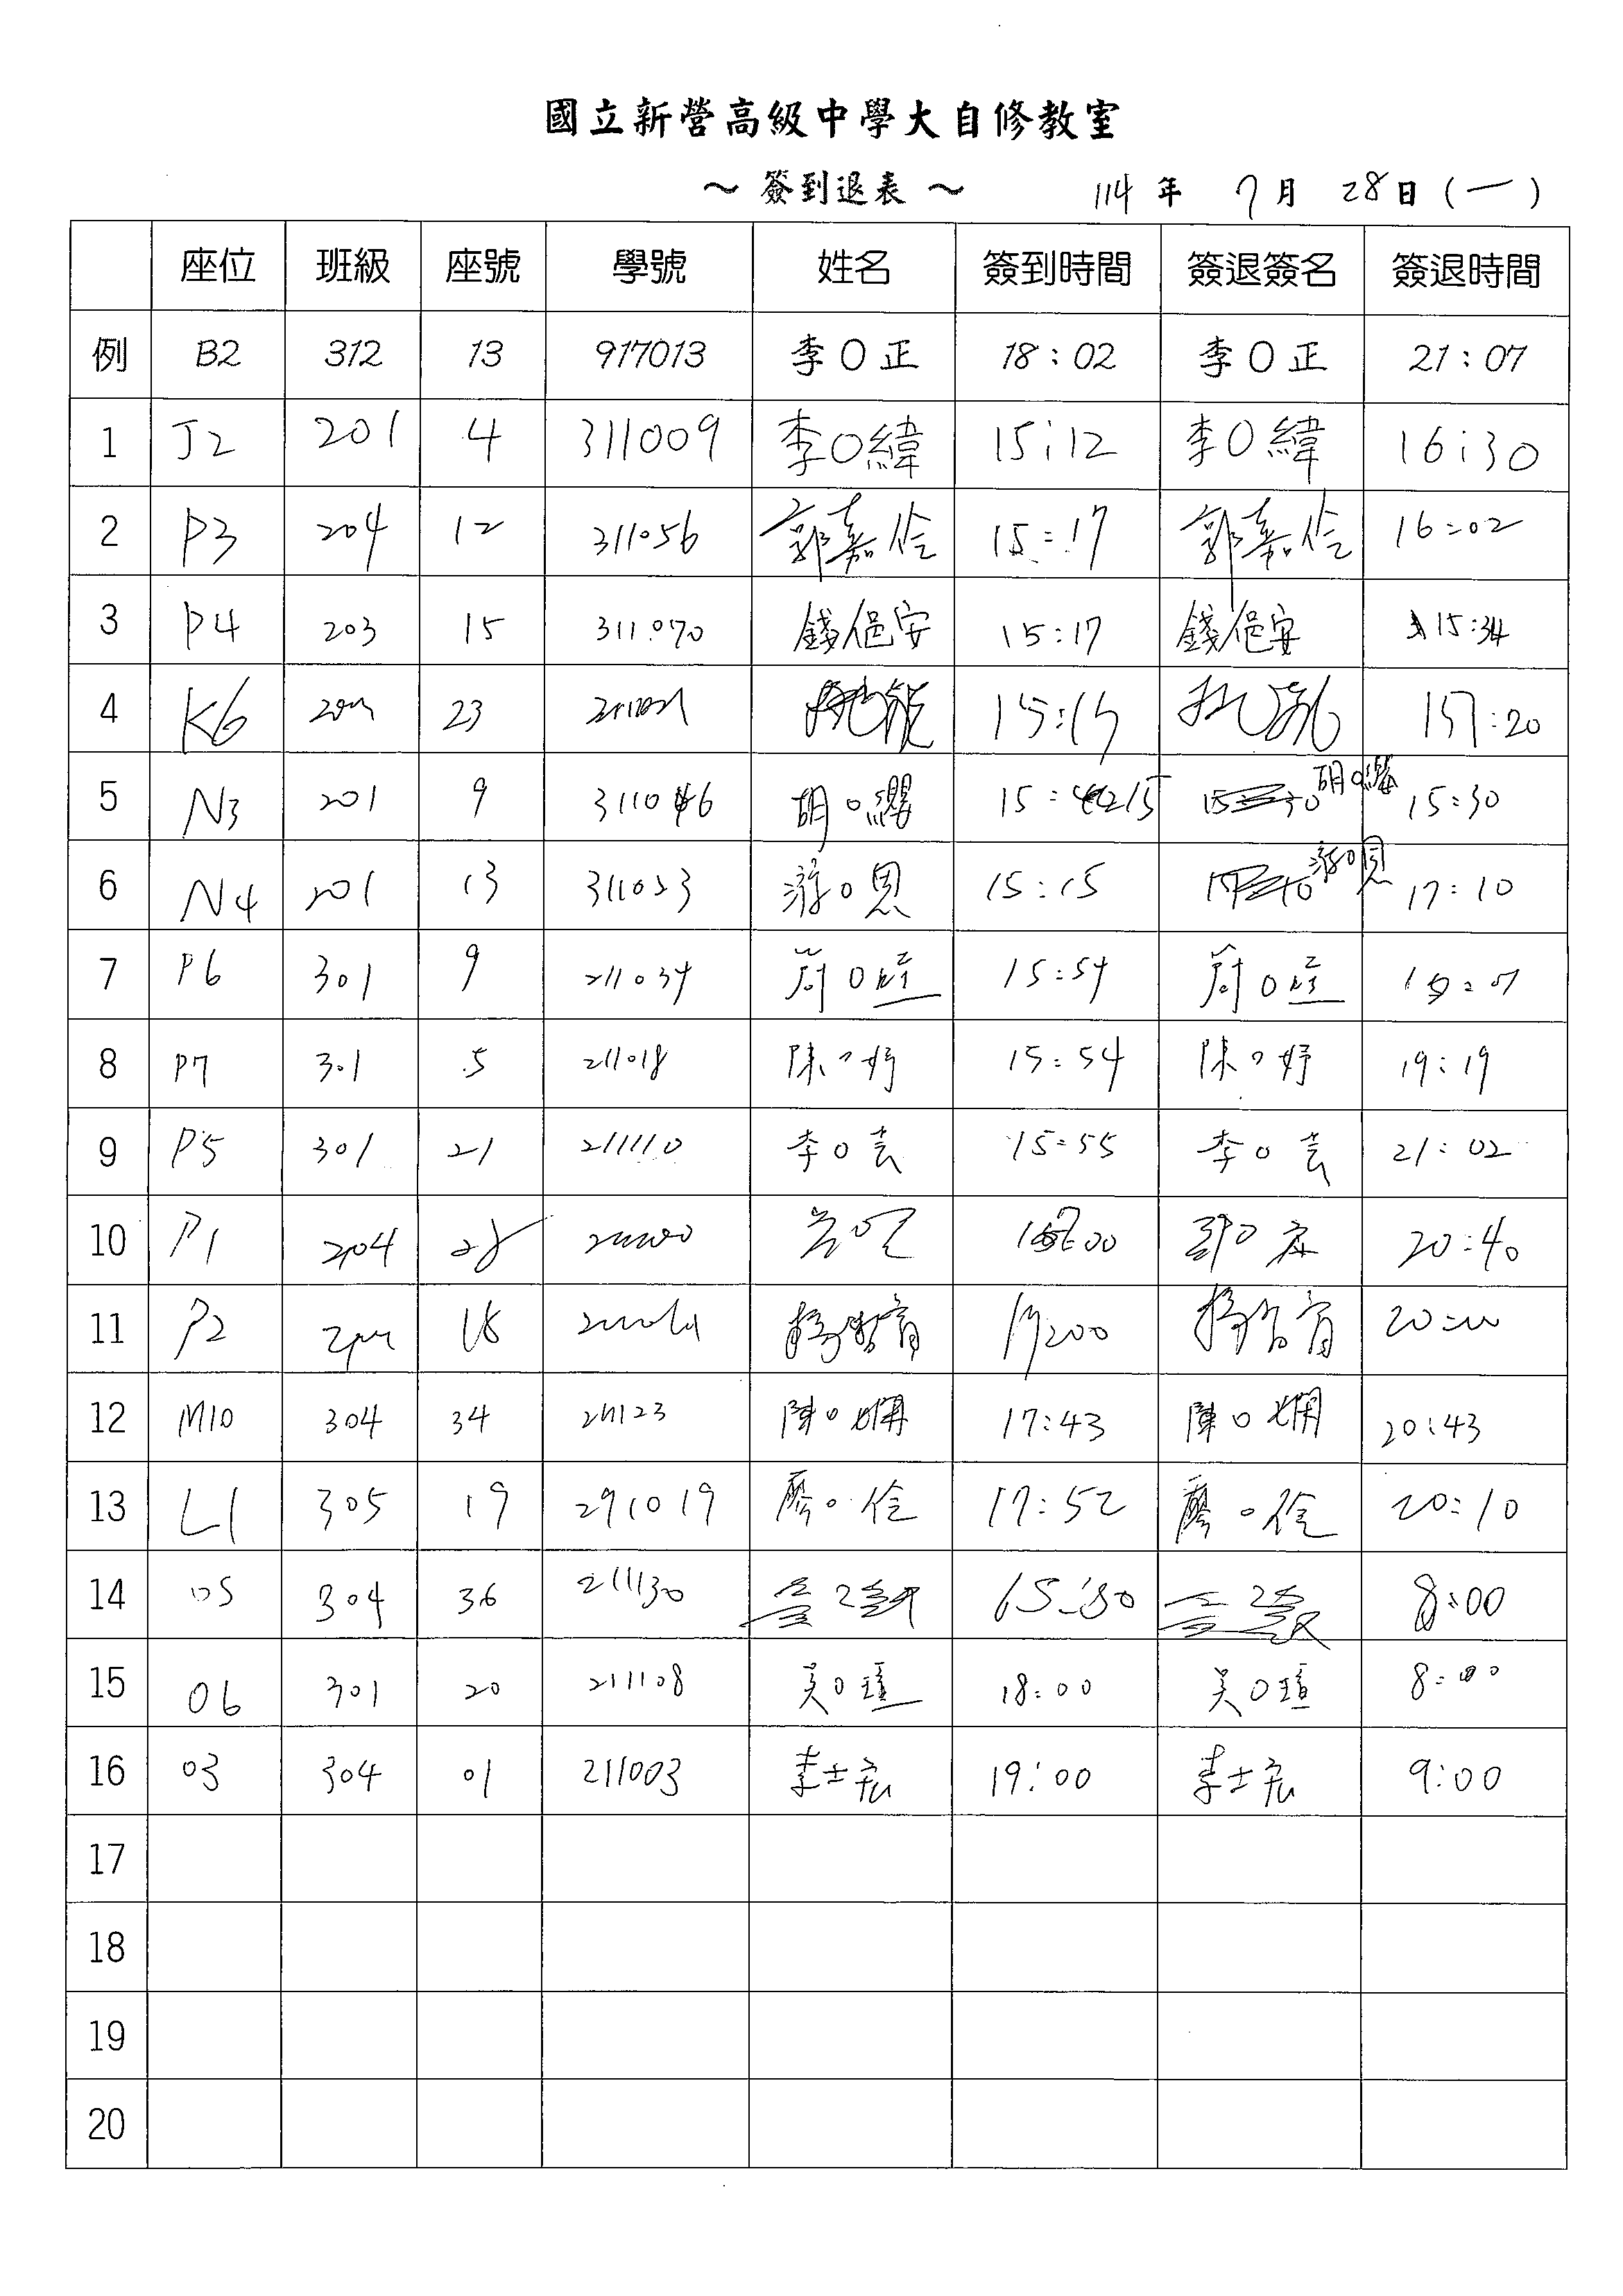 國立新營高級中學大自修教室
～ 簽到退表 ～ 114 年 7 月 28 日 (一)
座位 班級 座號 學號 姓名 簽到時間 簽退簽名 簽退時間
例 B2 312 13 917013 李O正 18:02 李O正 21:07
1 J2 201 4 311009 李O緯 15:12 李O緯 16:30
2 P3 204 12 311056 郭嘉伶 15:17 郭嘉伶 16:02
3 P4 203 15 311070 錢俋安 15:17 錢俋安 15:34
4 K6 23 15:15 :20
5 N3 201 9 311046 胡O纓 15:15 胡O纓 15:30
6 N4 201 13 311053 游O恩 15:15 游O恩 17:10
7 P6 301 9 211034 15:54
8 P7 301 5 211018 陳O妤 15:54 陳O妤 19:19
9 P5 301 21 211110 李O芸 15:55 李O芸 21:02
10 P1 204 28 20:40
11 P2 18
12 M10 304 34 211123 陳O嫻 17:43 陳O嫻 20:43
13 L1 305 19 291019 廖O佺 17:52 廖O佺 20:10
14 05 304 36 211130 8:00
15 06 301 20 211108 吳O瑄 18:00 吳O瑄 8:00
16 03 304 01 211003 李士宏 19:00 李士宏 9:00
17
18
19
20